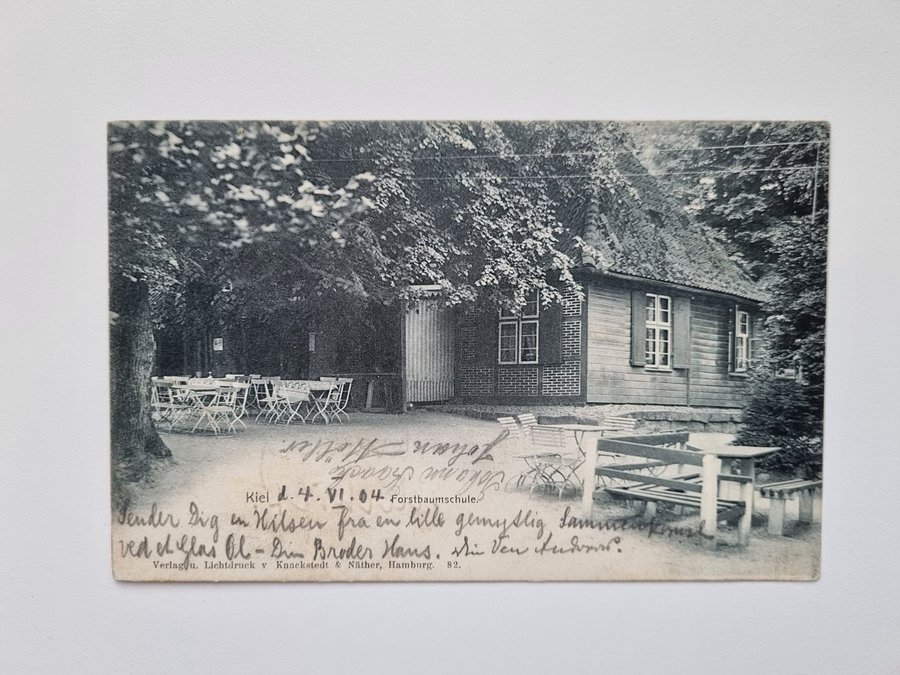 Johan Møller
Johann Raack
Kiel d. 4. VI. 04 Forstbaumschule.
Sender Dig en Hilsen fra en lille gemytlig Sammenkomst
ved et Glas Øl - Din Broder Hans. Din Ven Andreas.
Verlag u. Lichtdruck v Knackstedt & Näther, Hamburg. 82.